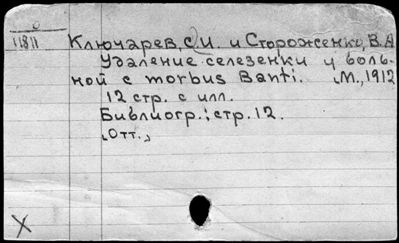 0
11811
Ключарев, С.И. и Стороженко, В.А
Удаление селезенки у боль-
ной с morbus Banti. М., 1912
12 стр. с илл.
Библиогр.: стр. 12.
(Отт.)
X